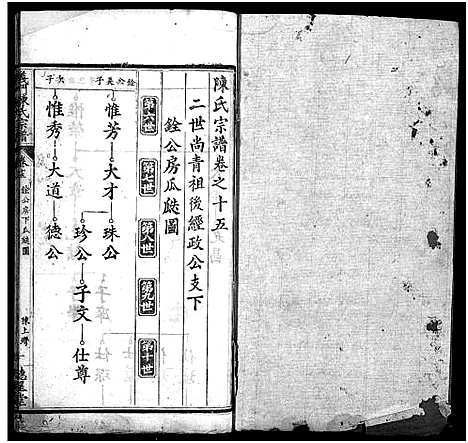 陳氏宗譜卷之十五
二世尚青祖後經政公支下
銓公房瓜瓞圖
第六世
第七世
第八世
第九世
第十世
銓公長子
惟芳
大才
珠公
珍公
子文
仕尊
次子
惟秀
大道
德公
陳氏宗譜
銓公房下瓜瓞圖